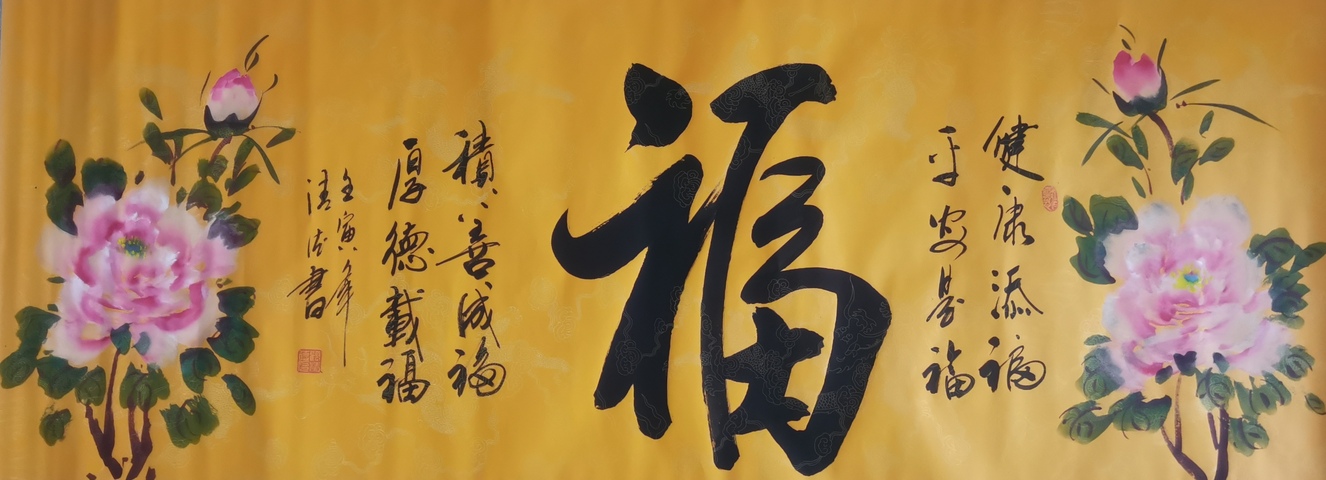 健康添福
平安是福
福
積善成福
厚德載福
壬寅年
清書